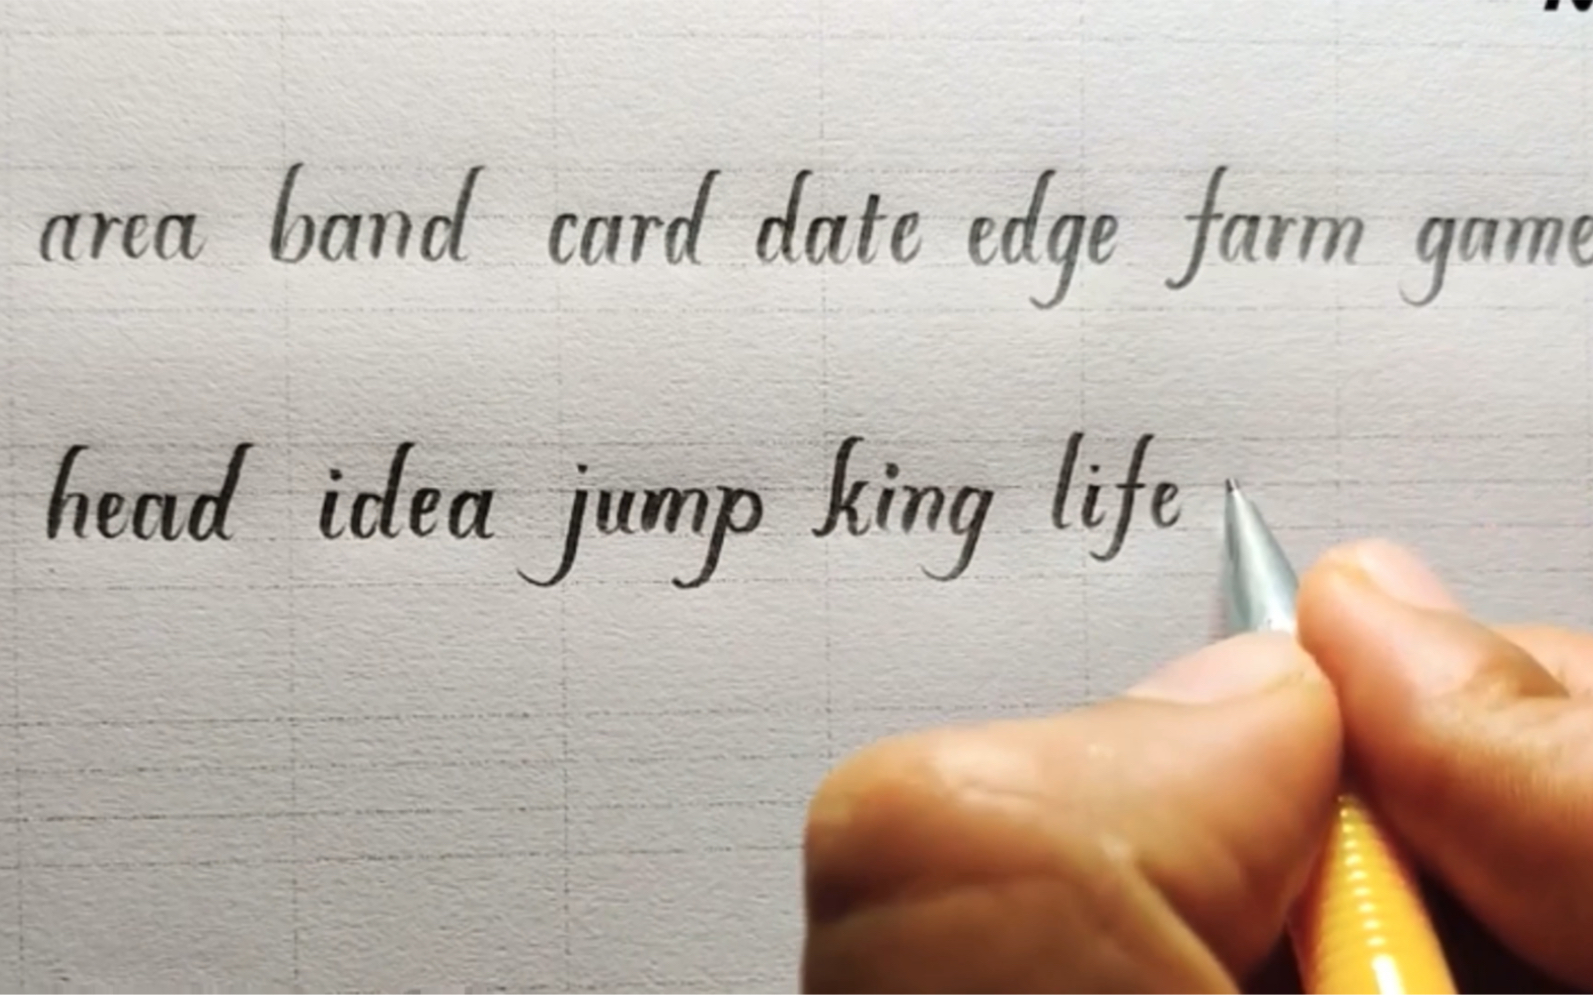 area band card date edge farm game
head idea jump king life